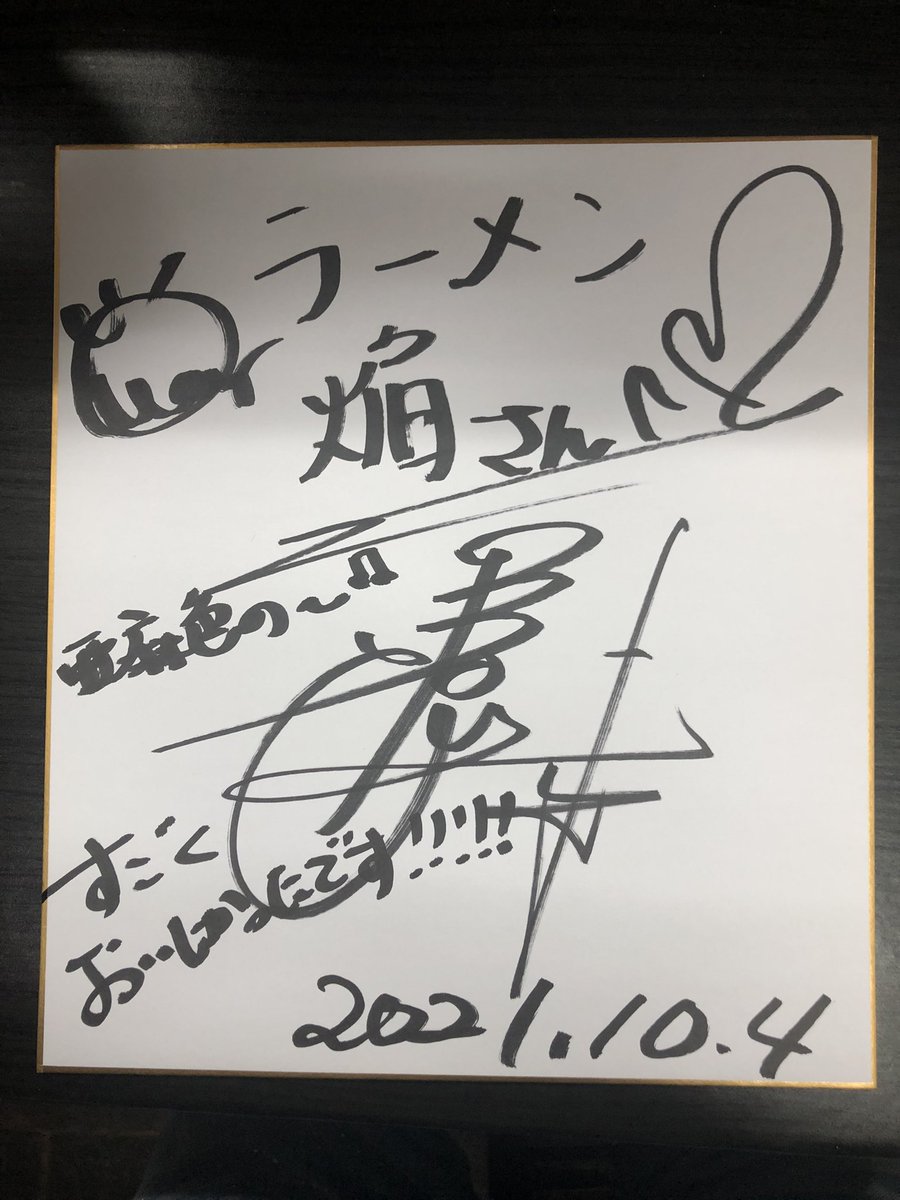 ラーメン
焔さんへ
亜麻色の〜♫
すごく
おいしかったです!!!!!
2021.10.4